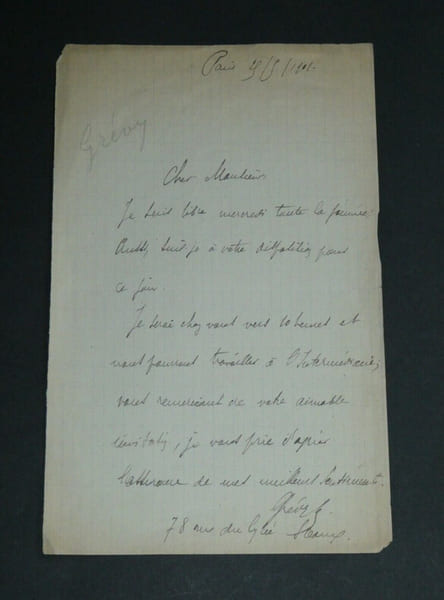 Paris
Grévy
Cher Monsieur
Je suis libre mercredi toute la journée
Aussi, suis je à votre disposition pour
ce jour.
Je serai chez vous vers heures et
nous pourrons travailler à l'Intermédiaire;
vous remerciant de votre aimable
invitation, je vous prie d'agréer
l'assurance de mes meilleurs sentiments.
Grévy
78 rue du Lycée Sceaux.